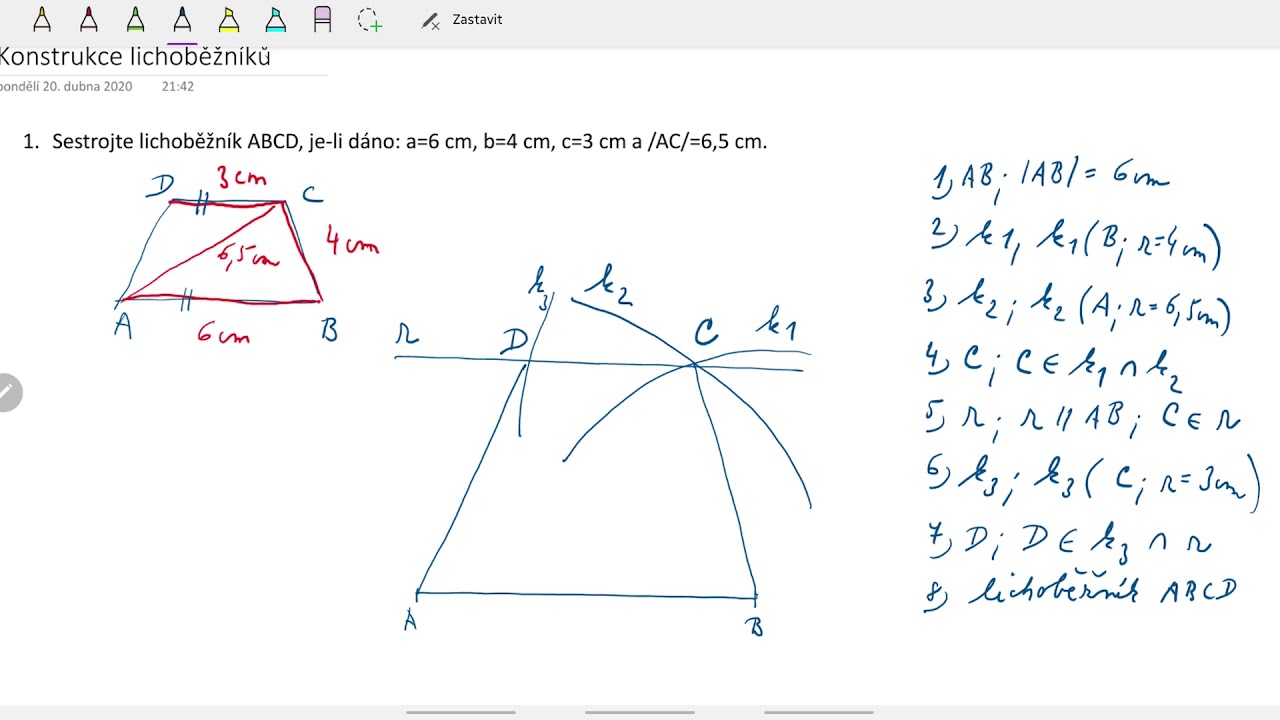 Zastavit
Konstrukce lichoběžníků
pondělí 20. dubna 2020 21:42
1. Sestrojte lichoběžník ABCD, je-li dáno: a=6 cm, b=4 cm, c=3 cm a /AC/=6,5 cm.
D 3 cm C
4 cm
6,5 cm
A 6 cm B
k3 k2
r D C k1
A B
1, AB; |AB| = 6 cm
2) k1, k1 (B; r=4 cm)
3, k2; k2 (A; r=6,5 cm)
4, C; C ∈ k1 ∩ k2
5, r; r // AB; C ∈ r
6) k3; k3 (C; r=3 cm)
7, D; D ∈ k3 ∩ r
8, lichoběžník ABCD